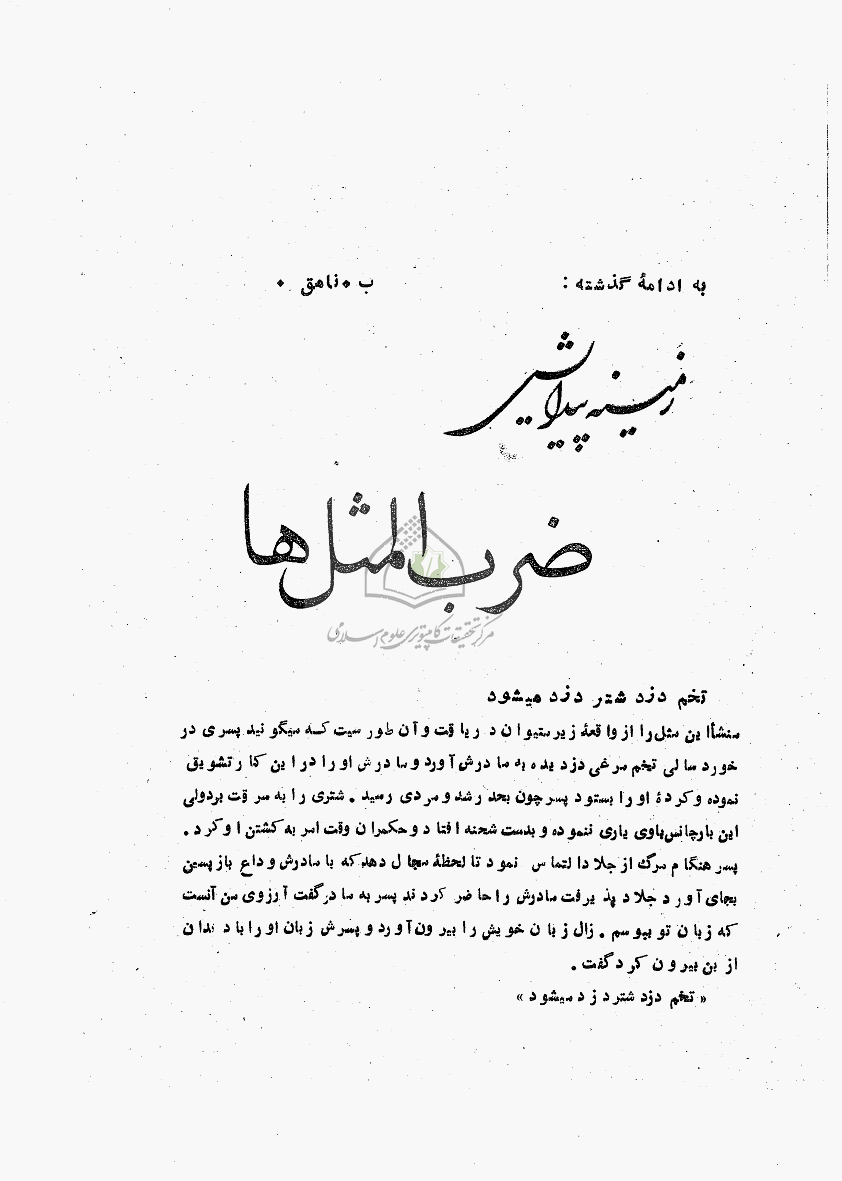 به ادامهٔ گذشته : ب ۰ ناهق ۰
زمینه پیدایش
ضرب المثل ها
مرکز تحقیقات کامپیوتری علوم اسلامی
تخم دزد شتر دزد میشود
منشأ این مثل را از واقعهٔ زیر میتوان دریافت و آن طور سیت که میگویند پسری در
خورد سالی تخم مرغی دزدیده به مادرش آورد و مادرش او را در این کار تشویق
نموده و کردهٔ او را بستود پسر چون بحد رشد و مردی رسید . شتری را به سرقت بردولی
این بارچانس باوی یاری ننموده و بدست شحنه افتاد و حکمران وقت امر به کشتن او کرد .
پسر هنگام مرگ از جلاد التماس نمود تا لحظهٔ مجال دهد که با مادرش وداع بازپسین
بجای آورد جلاد پذیرفت مادرش را حاضر کردند پسر به مادر گفت آرزوی من آنست
که زبان تو ببوسم . زال زبان خویش را بیرون آورد و پسرش زبان او را با دندان
از بن بیرون کرد گفت .
« تخم دزد شتر دزد میشود »